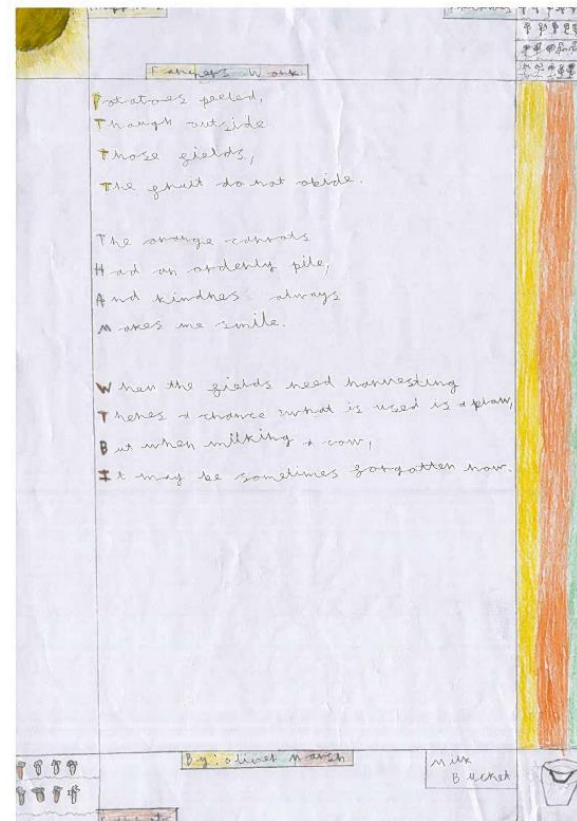 Farmers Work
Potatoes peeled,
Though outside
Those fields,
The fruit do not abide.
The orange carrots
Had an orderly pile,
And kindnes always
Makes me smile.
When the fields need harvesting
Theres a chance what is used is a plow,
But when milking a cow,
It may be sometimes forgotten how.
By: oliver Marsh
Milk
Bucket